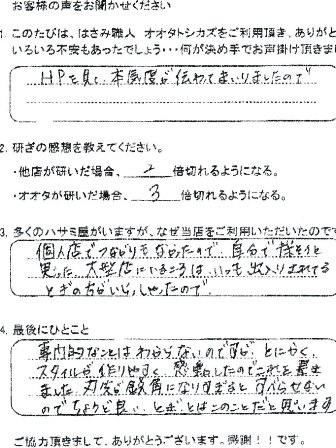 お客様の声をお聞かせください
1. このたびは、はさみ職人 オオタトシカズをご利用頂き、ありがと
いろいろ不安もあったでしょう・・・何が決め手でお声掛け頂きま
HPを見て本気度が伝わてまいりましたので
2. 研ぎの感想を教えてください。
・他店が研いだ場合、 2 倍切れるようになる。
・オオタが研いだ場合、 3 倍切れるようになる。
3. 多くのハサミ屋がいますが、なぜ当店をご利用いただいたのです
個人店でつながりもなかったので、自分で探そうと
思った 大型店にいるころは、いつも出入りされてる
とぎの方がいらしゃったので。
4. 最後にひとこと
専門的なことはわからないのですが、とにかく、
スタイルが作りやすく 感動したのでこれを書き
ました 刃先が鋭角になりすぎると すべらせない
のでちょうど良い、とぎとはこのことだと思います
ご協力頂きまして、ありがとうございます。感謝!!です。